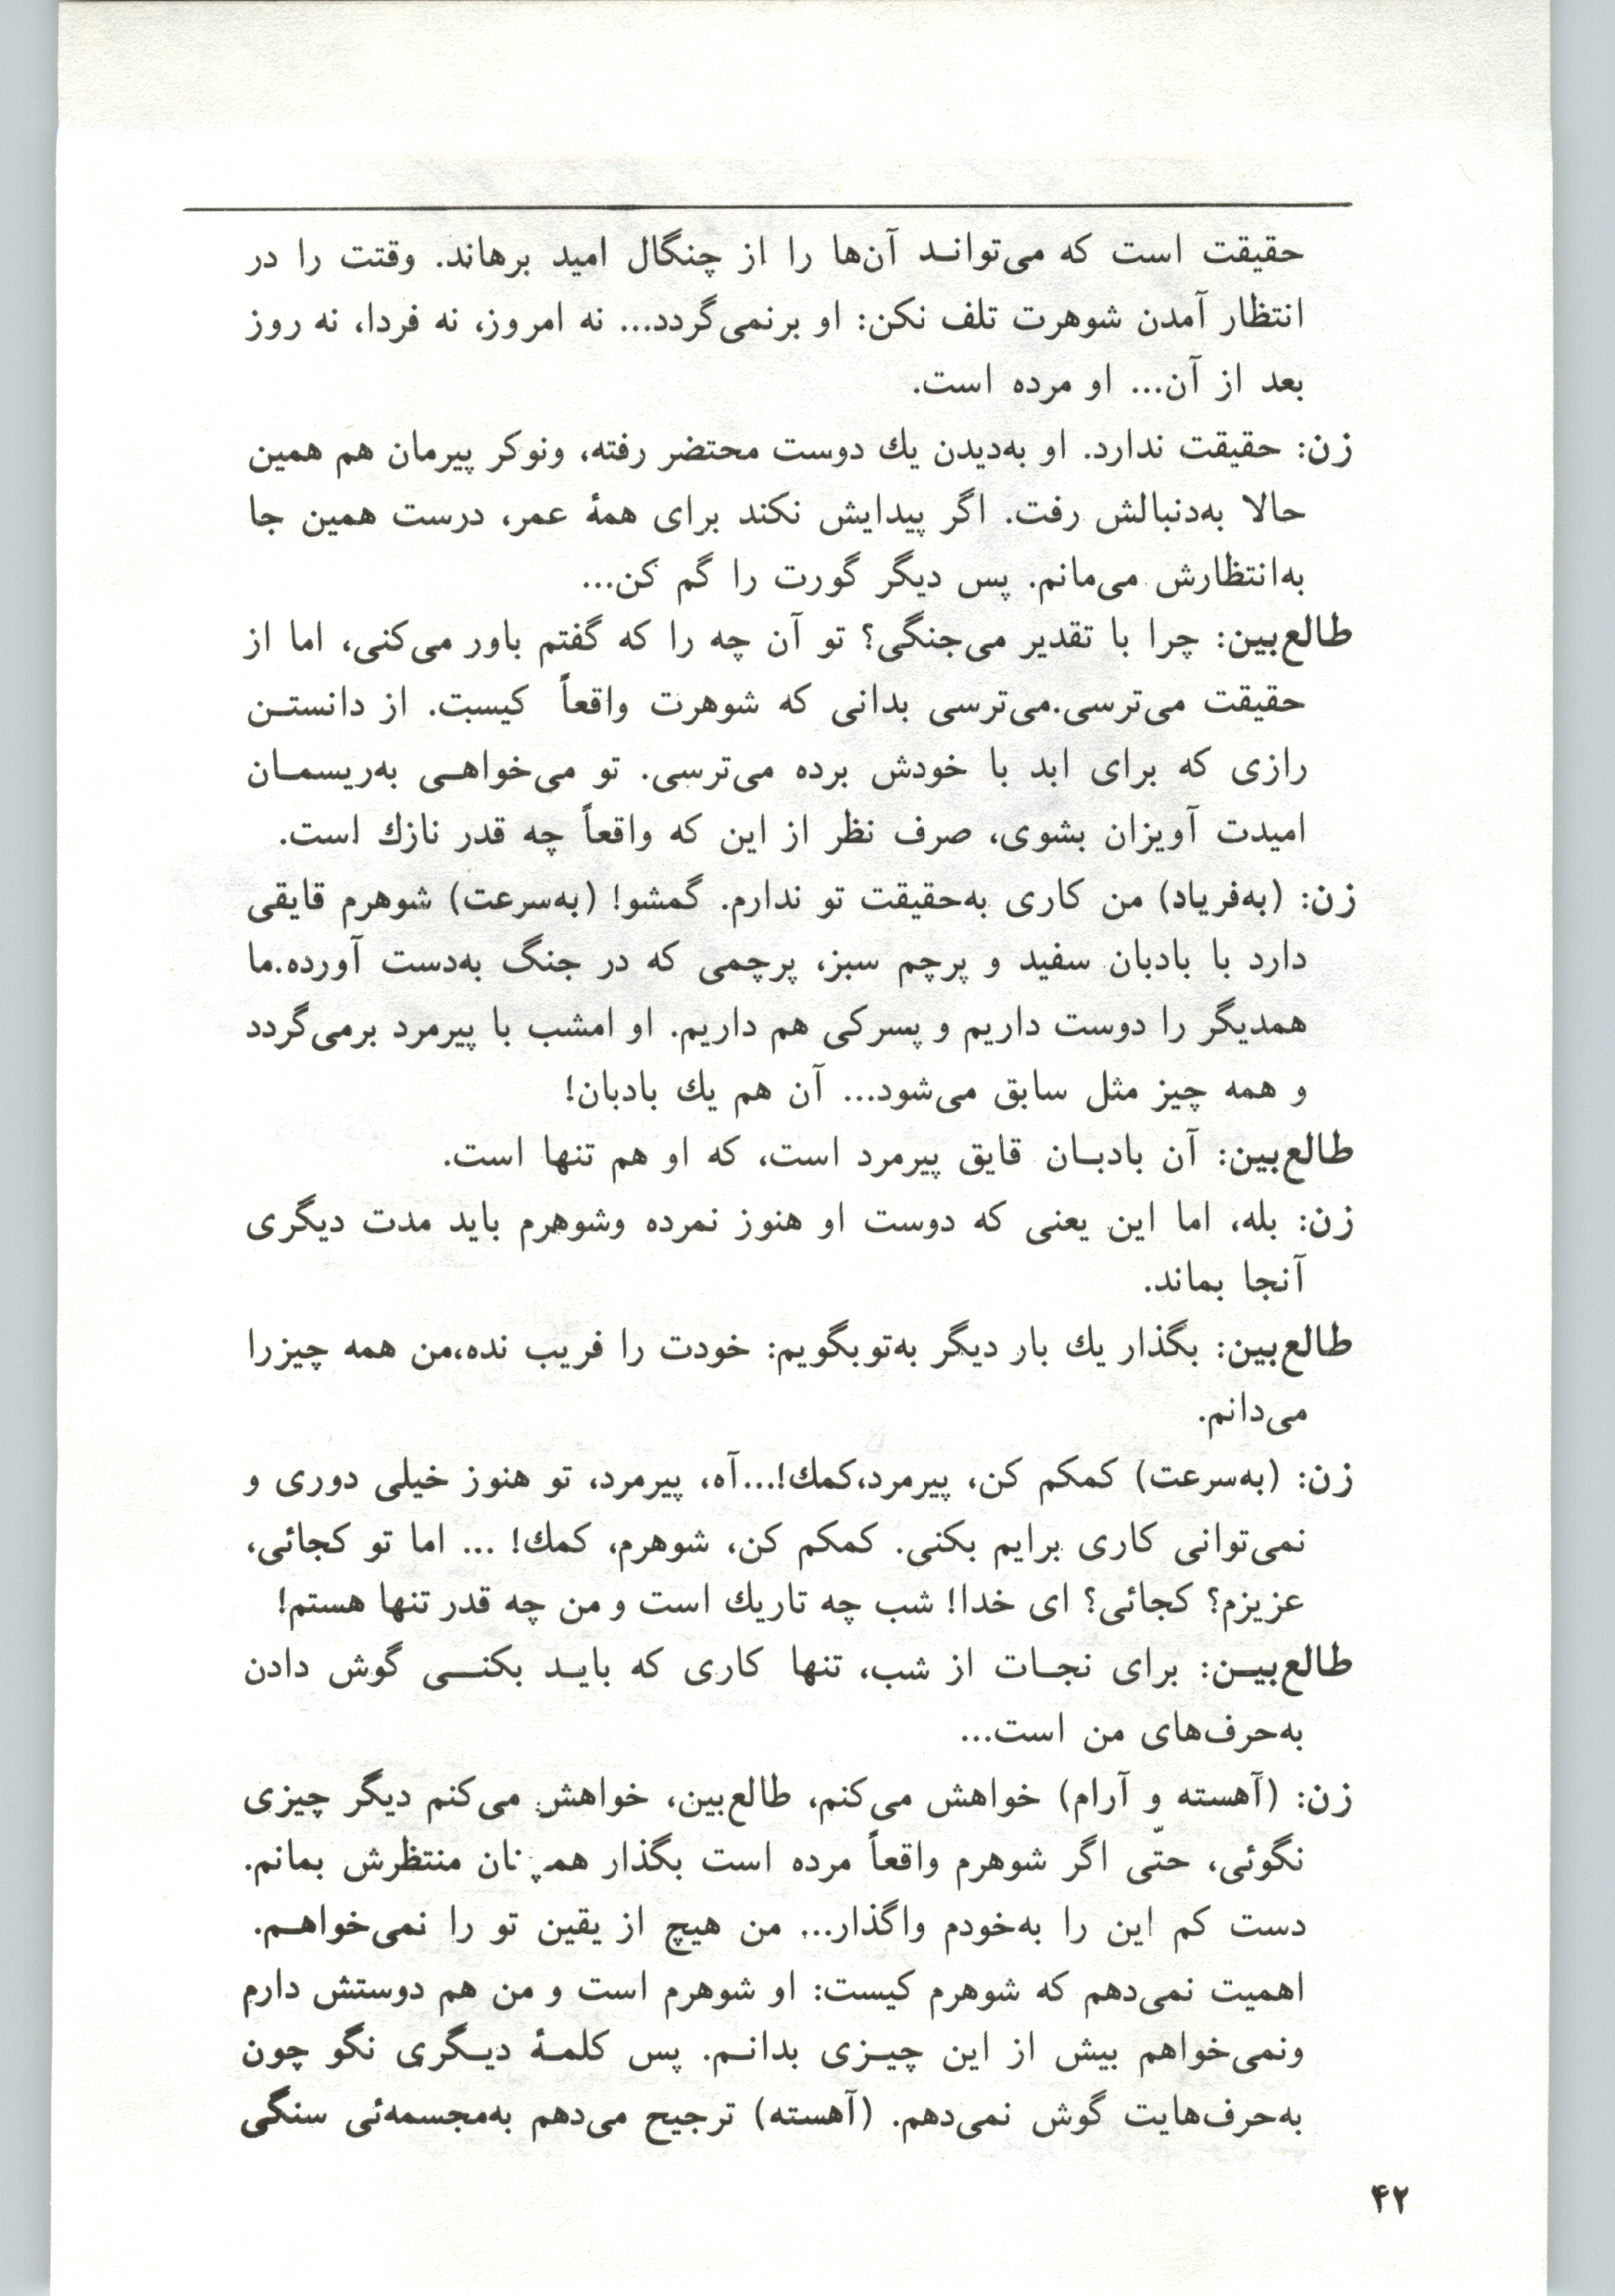 حقیقت است که می‌توانـد آن‌ها را از چنگال امید برهاند. وقتت را در
انتظار آمدن شوهرت تلف نکن: او برنمی‌گردد... نه امروز، نه فردا، نه روز
بعد از آن... او مرده است.
زن: حقیقت ندارد. او به‌دیدن یك دوست محتضر رفته، ونوکر پیرمان هم همین
حالا به‌دنبالش رفت. اگر پیدایش نکند برای همهٔ عمر، درست همین جا
به‌انتظارش می‌مانم. پس دیگر گورت را گم کن...
طالع‌بین: چرا با تقدیر می‌جنگی؟ تو آن چه را که گفتم باور می‌کنی، اما از
حقیقت می‌ترسی.می‌ترسی بدانی که شوهرت واقعاً کیست. از دانستـن
رازی که برای ابد با خودش برده می‌ترسی. تو می‌خواهـی به‌ریسمـان
امیدت آویزان بشوی، صرف نظر از این که واقعاً چه قدر نازك است.
زن: (به‌فریاد) من کاری به‌حقیقت تو ندارم. گمشو! (به‌سرعت) شوهرم قایقی
دارد با بادبان سفید و پرچم سبز، پرچمی که در جنگ به‌دست آورده.ما
همدیگر را دوست داریم و پسرکی هم داریم. او امشب با پیرمرد برمی‌گردد
و همه چیز مثل سابق می‌شود... آن هم یك بادبان!
طالع‌بین: آن بادبـان قایق پیرمرد است، که او هم تنها است.
زن: بله، اما این یعنی که دوست او هنوز نمرده وشوهرم باید مدت دیگری
آنجا بماند.
طالع‌بین: بگذار یك بار دیگر به‌تو بگویم: خودت را فریب نده،من همه چیزرا
می‌دانم.
زن: (به‌سرعت) کمکم کن، پیرمرد،کمك!...آه، پیرمرد، تو هنوز خیلی دوری و
نمی‌توانی کاری برایم بکنی. کمکم کن، شوهرم، کمك! ... اما تو کجائی،
عزیزم؟ کجائی؟ ای خدا! شب چه تاریك است و من چه قدر تنها هستم!
طالع‌بیـن: برای نجـات از شب، تنها کاری که بایـد بکنـی گوش دادن
به‌حرف‌های من است...
زن: (آهسته و آرام) خواهش می‌کنم، طالع‌بین، خواهش می‌کنم دیگر چیزی
نگوئی، حتّی اگر شوهرم واقعاً مرده است بگذار همچنان منتظرش بمانم.
دست کم این را به‌خودم واگذار... من هیچ از یقین تو را نمی‌خواهـم.
اهمیت نمی‌دهم که شوهرم کیست: او شوهرم است و من هم دوستش دارم
ونمی‌خواهم بیش از این چیـزی بدانـم. پس کلمـهٔ دیـگری نگو چون
به‌حرف‌هایت گوش نمی‌دهم. (آهسته) ترجیح می‌دهم به‌مجسمه‌ئی سنگی
۴۲